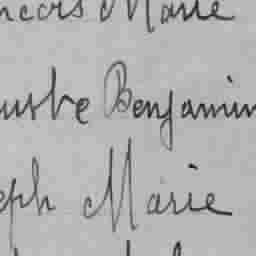 ncois Marie
Benjamin
eph Marie